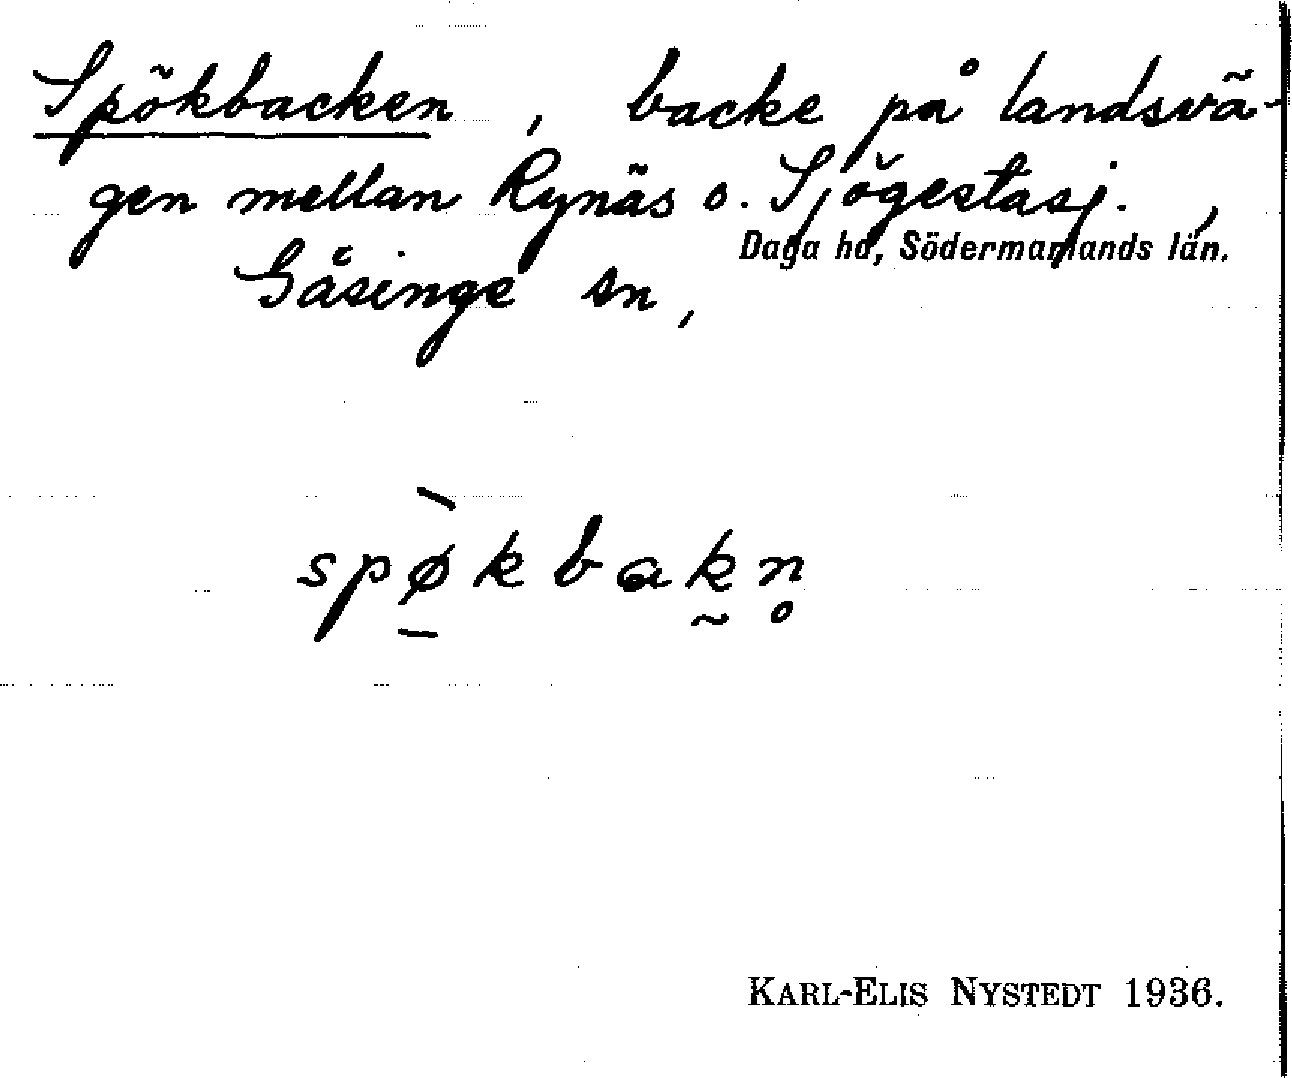 Spökbacken, backe på landsvä-
gen mellan Rynäs o. Sjögestasj.,
Daga hd, Södermanlands län.
Gåsinge sn,
spø̀kbakn̥
KARL-ELIS NYSTEDT 1936.